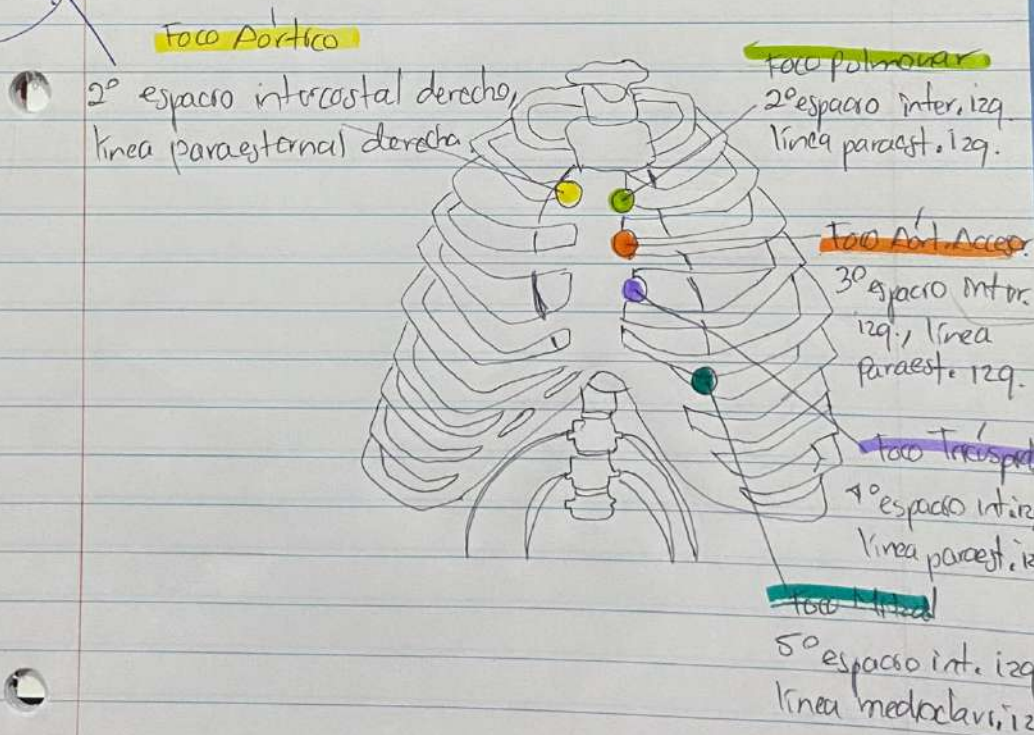 Foco Aórtico
2° espacio intercostal derecho,
línea paraesternal derecha
Foco pulmonar
2° espacio inter. izq.
línea paraest. izq.
Foco Aórt. Acceso.
3° espacio inter.
izq., línea
paraest. izq.
Foco Tricúspid
4° espacio int. iz
línea paraest. iz
Foco Mitral
5° espacio int. izq
línea medioclavi. iz